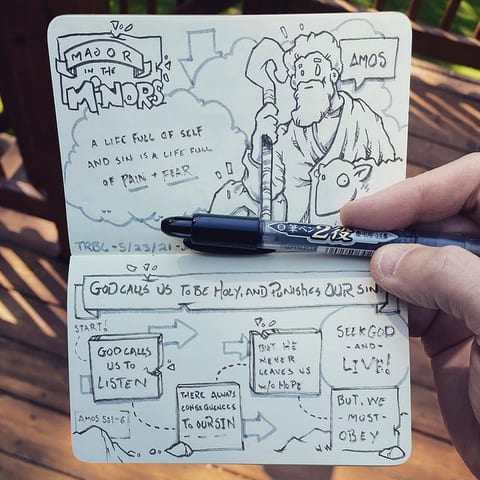 MAJOR
IN THE
MINORS
AMOS
A LIFE FULL OF SELF
AND SIN IS A LIFE FULL
OF PAIN + FEAR
TRBC - 5/23/21 -
2役
GOD CALLS US TO BE HOLY, AND PUNISHES OUR SIN
START!
GOD CALLS
US TO
LISTEN
AMOS 5:1-6
THERE ALWAYS
CONSEQUENCES
TO OUR SIN
BUT HE
NEVER
LEAVES US
W/O HOPE
SEEK GOD
- AND -
LIVE!
BUT, WE
- MUST -
OBEY